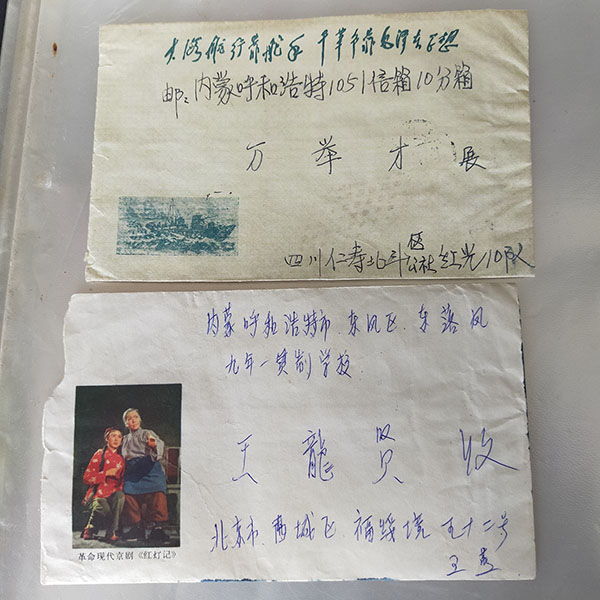 大海航行靠舵手 干革命靠毛泽东思想
邮:内蒙呼和浩特1051信箱10分箱
万举才 展
四川仁寿北斗区公社红光10队
内蒙呼和浩特市.东风区.东落凤
九年一贯制学校
王龍贤 收
北京市.西城区.福绥境 五十二号
王
革命现代京剧《红灯记》